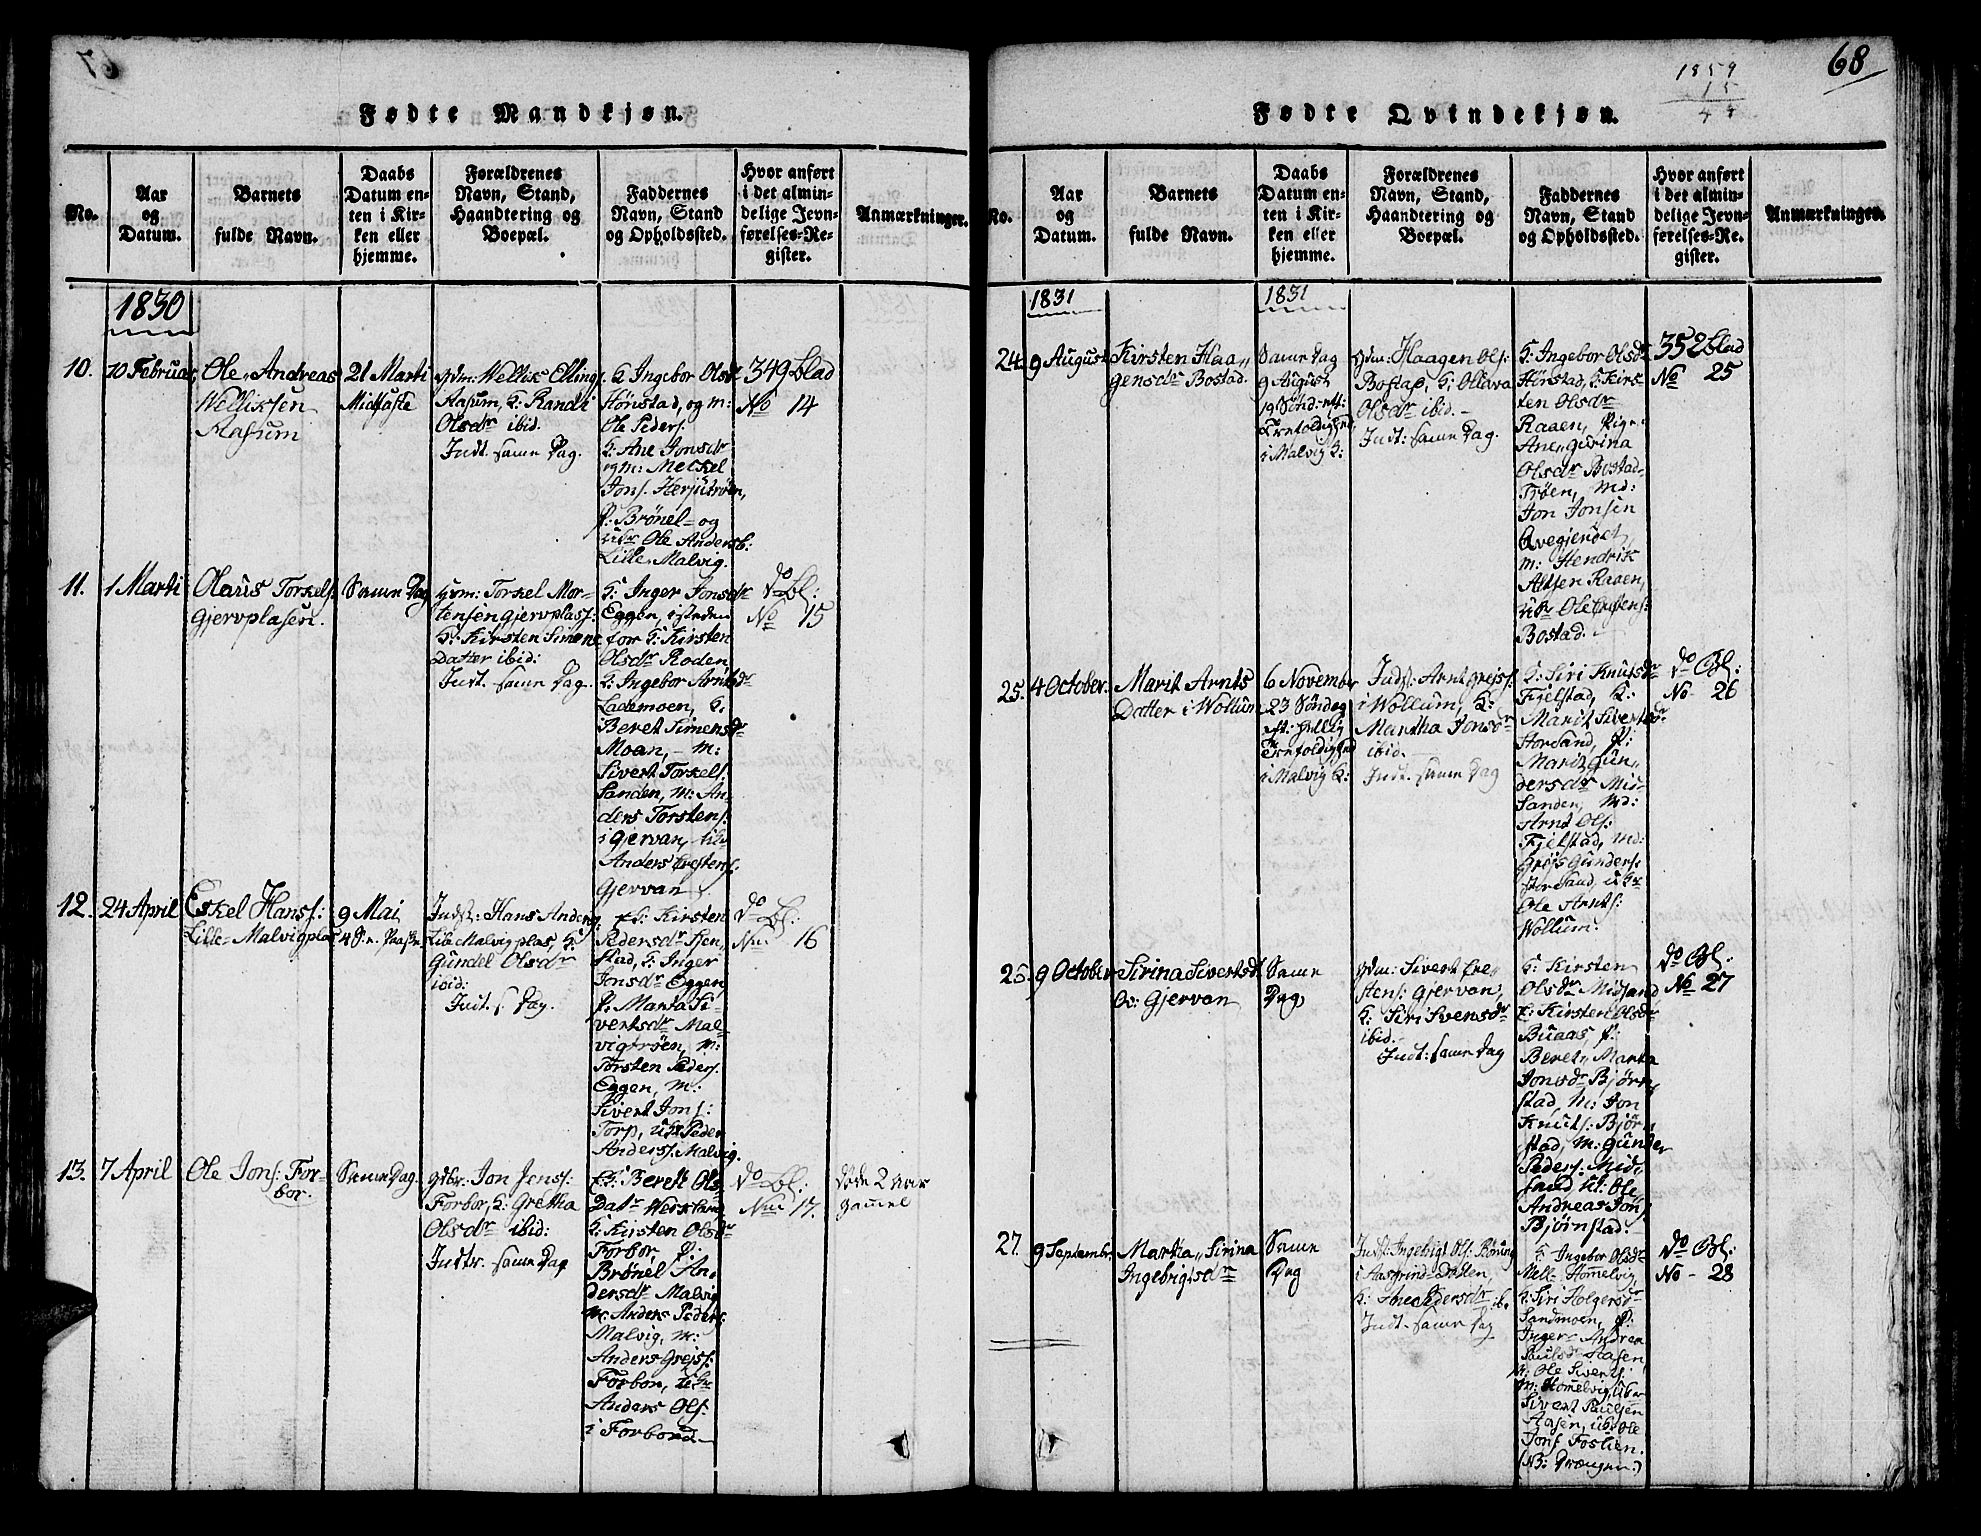 Fødte Mandkjøn.
No.
Aar
og
Datum.
Barnets
fulde Navn.
Daabs
Datum en-
ten i Kir-
ken eller
hjemme.
Forældrenes
Navn, Stand,
Haandtering og
Boepæl.
Faddernes
Navn, Stand
og Opholdssted.
Hvor anført
i det almin-
delige Jevn-
førelses-Re-
gister.
Anmærkninger.
1830
10.
10 Februar
Ole Andreas
Welliksen
Aasum
21 Marti
Midfaste
gdm: Wellik Ellings.
Aasum, K: Randi
Olsdr ibid.
Indt. samme Dag.
K Ingebor Olsdr
Hønstad, og m:
Ole Peders.
K: Ane Jonsdr
og m: Meckel
Jons. Herjutrøen,
P: Brønel- og
Ole Anders
Lille Malvig.
349 Blad
No 14
11.
1 Marti
Olaus Torkels.
Gjervplasen.
Samme Dag
hm: Torkel Mor-
tensen Gjervplass:
K: Kirsten Simens
Datter ibid:
Indt. samme Dag.
K: Inger Jonsdr
Eggen, isteden
for K: Kirsten
Olsdr Roden
K: Ingebor Arntsdr
Lademoen, K:
Beret Simensdr
Moan, - m:
Sivert Torkels.
Sanden, m: An-
ders Torstens:
i Gjervan,
Anders Erstens.
Gjervan
do Bl:
No 15
12.
24 April
Eskel Hanss:
Lille- Malvigplas
9 Mai
4 S. n. Paaske
Indst: Hans Anders.
Lille Malvigplas, K:
Gundel Olsdr
ibid:
Indt. s Dag.
K: Kirsten
Pedersdr Sten-
stad, K: Inger
Jonsdr Eggen
P: Marta Si-
vertsdr Mal-
vigtrøen, m:
Torsten Peders.
Eggen, m:
Sivert Jons:
Torp, ubr Peder
Anderss. Malvig.
do Bl:
No 16
13.
7 April
Ole Jons. For-
bor.
Samme Dag.
gdbr: Jon Jenss:
Forbor, K: Gretha
Olsdr ibid:
Indtr. samme Dag
K: Beret Ols
Datr Werstand
K: Kirsten Olsdr
Forbor, P:
Brønel An-
dersdr Malvig
m: Anders Peders.
Malvig, m:
Anders Grejss:
Forbor, ubr
Anders Ols.
i Forbord
do Bl:
No 17.
Døde 2 aar
gammel
68
1859
15
44
Fødte Qvindekjøn.
No.
Aar
og
Datum.
Barnets
fulde Navn.
Daabs
Datum en-
ten i Kir-
ken eller
hjemme.
Forældrenes
Navn, Stand,
Haandtering og
Boepæl.
Faddernes
Navn, Stand
og Opholdssted.
Hvor anført
i det almin-
delige Jevn-
førelses-Re-
gister.
Anmærkninger.
1831
1831
24.
9 August
Kirsten Haa„
gensdr Bostad.
Samme Dag
9 August
19 Sønd: eft:
Trefoldighed
i Malvig K:
gdm: Haagen Ols:
Bostad, K: Ollava
Olsdr ibid. -
Indt: samme Dag.
K: Ingebor Olsdr
Hønstad, K: Kirs-
ten Olsdr
Raaen, Pige:
Ane„ Gurina
Olsdr Bostad-
Trøen, md:
Jon Jonsen
Qvegjerdet,
m: Hendrik
Raaen,
ubr Ole Erstens:
Bostad.
352 Blad
No 25
25.
4 October.
Marit Arnts
Datter i Wollum
6 November
23 Søndag
eft: hellig
Trefoldighed
i Malvig K:
Indst: Arnt Grejss.
i Wollum, K:
Martha Jonsdr
ibid.
Indt. samme Dag
K: Siri Knutsdr
Fjelstad, K:
Marit Sivertsdr
Storsand, P:
Marit Gun„
dersdr Mid-
sanden, md:
Arnt Ols:
Fjelstad, md:
Grejs Gunders:
Storsand, ubr
Ole Arnts:
Wollum.
do Bl:
No- 26
26.
9 October
Sirina Sivertsdt
os: Gjervan
Samme
Dag
gdm: Sivert Ere„
stens: Gjervan,
K: Siri Svensdr
ibid.-
Indt: samme Dag
K: Kirsten
Olsdr Midsand
K: Kirsten Olsdr
Buaas, P:
Beret„ Marta
Jonsdr Bjørn-
stad, m: Jon
Knuts: Bjørn-
stad, m: Gunder
Peders: Mid-
sand, ut: Ole„
Andreas Jons.
Bjørnstad.
do Bl:
No 27
27.
9 Septembr.
Martha„ Sirina
Ingebrigtsdr
Samme
Dag
Indst: Ingebrigt Ols: Røning
i Aasgrind- Dalen,
K: Ane Pedersdr ib.
Indt. samme Dag
K Ingebor Olsdr
Mell- Hommelvig
K: Siri Holgersdr
Sandmoen, P:
Inger- Andrea
Paulsdr Aasen,
m: Ole Siverts:
m: Hommelvig, ubr
Sivert Paulsen
Aasen, ubr Ole
Jons. Foslien.
(NB: Drængen:)
do Bl:
No - 28